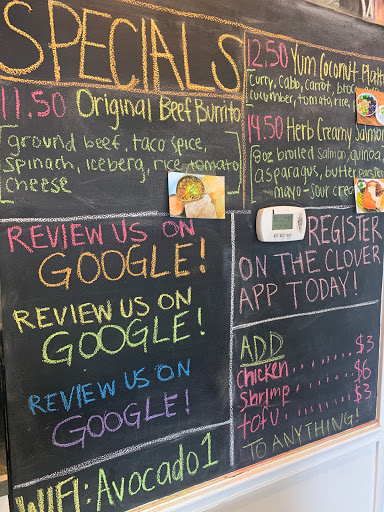 SPECIALS
11.50 Original Beef Burrito
ground beef, taco spice,
spinach, iceberg, rice, tomato
cheese
12.50 Yum Coconut
curry, cabb, carrot,
cucumber, tomato, rice,
14.50 Herb Creamy Salmon
8oz broiled salmon, quinoa,
asparagus, butter, parsley
mayo-sour
REVIEW US ON
GOOGLE!
REVIEW US ON
GOOGLE!
REVIEW US ON
GOOGLE!
WIFI: Avocado1
REGISTER
ON THE CLOVER
APP TODAY!
ADD
chicken ....... $3
Shrimp ....... $6
tofu ....... $3
TO ANYTHING!